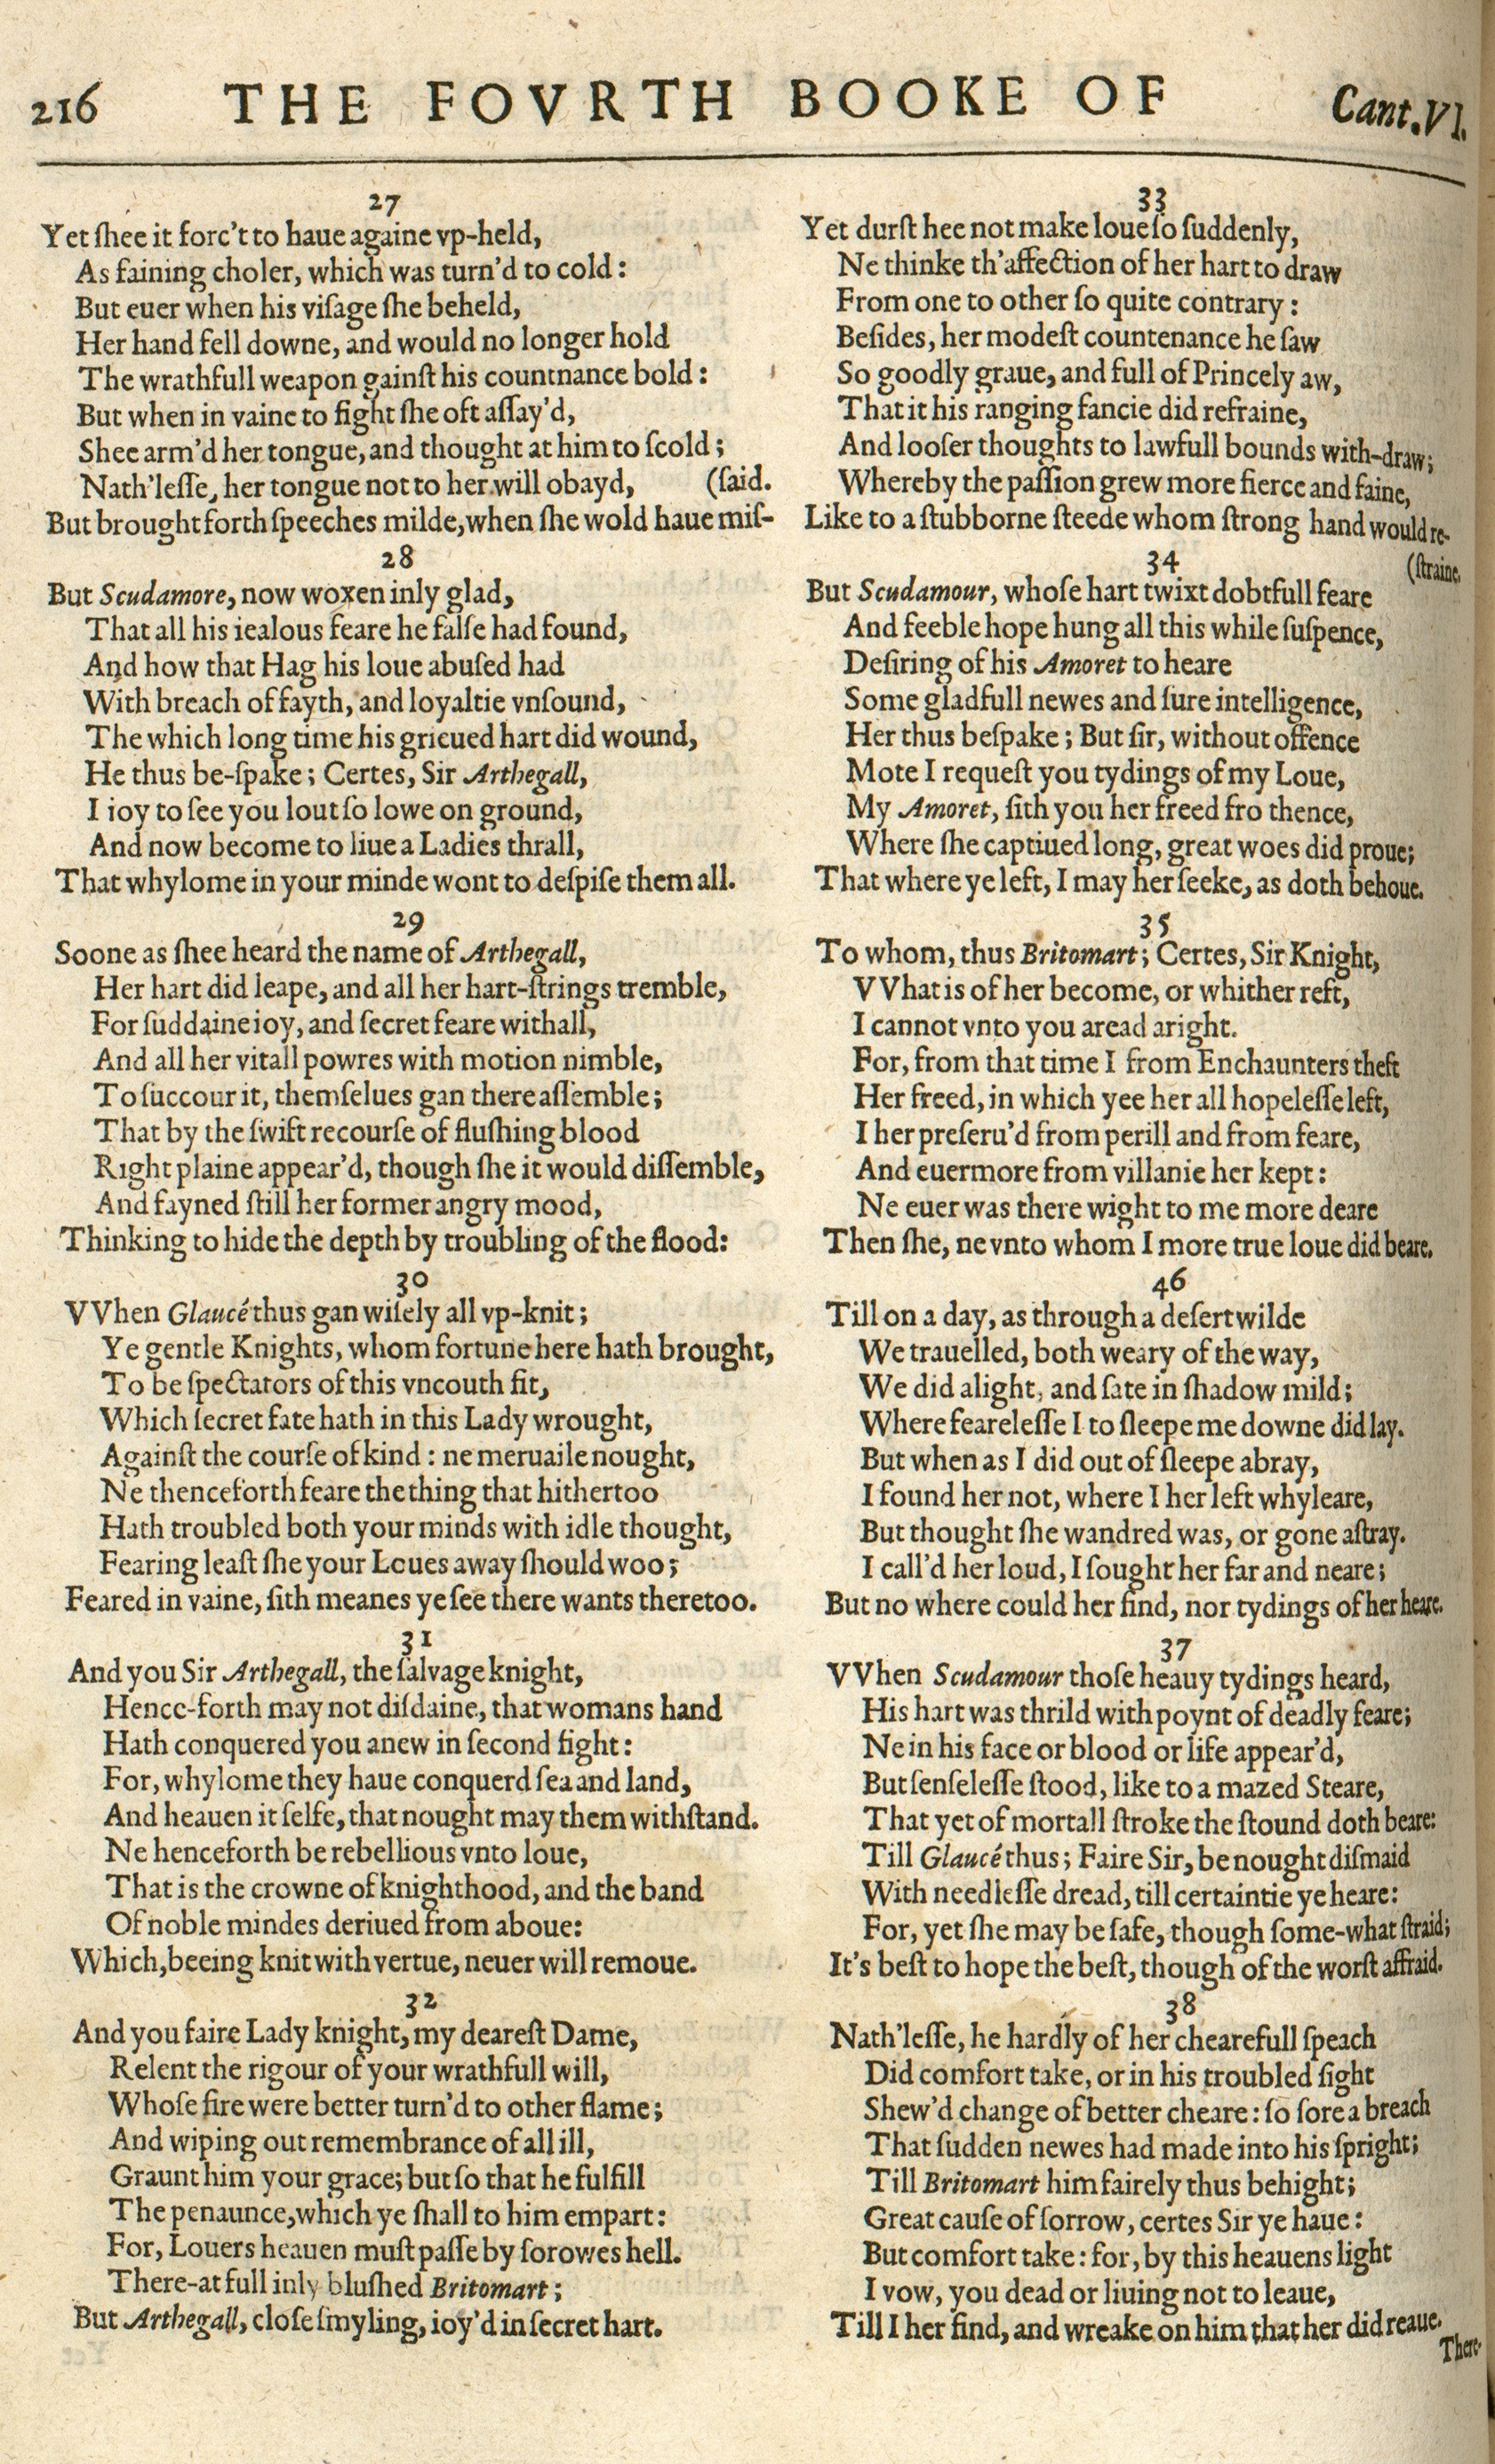 216 THE FOVRTH BOOKE OF Cant.VI.
27
Yet ſhee it forc't to haue againe vp-held,
As faining choler, which was turn'd to cold:
But euer when his viſage ſhe beheld,
Her hand fell downe, and would no longer hold
The wrathfull weapon gainſt his countnance bold:
But when in vaine to fight ſhe oft aſſay'd,
Shee arm'd her tongue, and thought at him to ſcold;
Nath'leſſe, her tongue not to her will obayd, (ſaid.
But brought forth ſpeeches milde, when ſhe wold haue miſ-
28
But Scudamore, now woxen inly glad,
That all his iealous feare he falſe had found,
And how that Hag his loue abuſed had
With breach of fayth, and loyaltie vnſound,
The which long time his grieued hart did wound,
He thus be-ſpake; Certes, Sir Arthegall,
I ioy to ſee you lout ſo lowe on ground,
And now become to liue a Ladies thrall,
That whylome in your minde wont to deſpiſe them all.
29
Soone as ſhee heard the name of Arthegall,
Her hart did leape, and all her hart-ſtrings tremble,
For ſuddaine ioy, and ſecret feare withall,
And all her vitall powres with motion nimble,
To ſuccour it, themſelues gan there aſſemble;
That by the ſwift recourſe of fluſhing blood
Right plaine appear'd, though ſhe it would diſſemble,
And fayned ſtill her former angry mood,
Thinking to hide the depth by troubling of the flood:
30
VVhen Glaucé thus gan wiſely all vp-knit;
Ye gentle Knights, whom fortune here hath brought,
To be ſpectators of this vncouth fit,
Which ſecret fate hath in this Lady wrought,
Againſt the courſe of kind: ne meruaile nought,
Ne thenceforth feare the thing that hithertoo
Hath troubled both your minds with idle thought,
Fearing leaſt ſhe your Loues away ſhould woo;
Feared in vaine, ſith meanes ye ſee there wants theretoo.
31
And you Sir Arthegall, the ſalvage knight,
Hence-forth may not diſdaine, that womans hand
Hath conquered you anew in ſecond fight:
For, whylome they haue conquerd ſea and land,
And heauen it ſelfe, that nought may them withſtand.
Ne henceforth be rebellious vnto loue,
That is the crowne of knighthood, and the band
Of noble mindes deriued from aboue:
Which, beeing knit with vertue, neuer will remoue.
32
And you faire Lady knight, my deareſt Dame,
Relent the rigour of your wrathfull will,
Whoſe fire were better turn'd to other flame;
And wiping out remembrance of all ill,
Graunt him your grace; but ſo that he fulfill
The penaunce, which ye ſhall to him empart:
For, Louers heauen muſt paſſe by ſorowes hell.
There-at full inly bluſhed Britomart;
But Arthegall, cloſe ſmyling, ioy'd in ſecret hart.
33
Yet durſt hee not make loue ſo ſuddenly,
Ne thinke th'affection of her hart to draw
From one to other ſo quite contrary:
Beſides, her modeſt countenance he ſaw
So goodly graue, and full of Princely aw,
That it his ranging fancie did refraine,
And looſer thoughts to lawfull bounds with-draw;
Whereby the paſſion grew more fierce and faine,
Like to a ſtubborne ſteede whom ſtrong hand would re-
(ſtraine.
34
But Scudamour, whoſe hart twixt dobtfull feare
And feeble hope hung all this while ſuſpence,
Deſiring of his Amoret to heare
Some gladfull newes and ſure intelligence,
Her thus beſpake; But ſir, without offence
Mote I requeſt you tydings of my Loue,
My Amoret, ſith you her freed fro thence,
Where ſhe captiued long, great woes did proue;
That where ye left, I may her ſeeke, as doth behoue.
35
To whom, thus Britomart; Certes, Sir Knight,
VVhat is of her become, or whither reft,
I cannot vnto you aread aright.
For, from that time I from Enchaunters theft
Her freed, in which yee her all hopeleſſe left,
I her preſeru'd from perill and from feare,
And euermore from villanie her kept:
Ne euer was there wight to me more deare
Then ſhe, ne vnto whom I more true loue did beare.
46
Till on a day, as through a deſert wilde
We trauelled, both weary of the way,
We did alight, and ſate in ſhadow mild;
Where feareleſſe I to ſleepe me downe did lay.
But when as I did out of ſleepe abray,
I found her not, where I her left whyleare,
But thought ſhe wandred was, or gone aſtray.
I call'd her loud, I ſought her far and neare;
But no where could her find, nor tydings of her heare.
37
VVhen Scudamour thoſe heauy tydings heard,
His hart was thrild with poynt of deadly feare;
Ne in his face or blood or life appear'd,
But ſenſeleſſe ſtood, like to a mazed Steare,
That yet of mortall ſtroke the ſtound doth beare:
Till Glaucé thus; Faire Sir, be nought diſmaid
With needleſſe dread, till certaintie ye heare:
For, yet ſhe may be ſafe, though ſome-what ſtraid;
It's beſt to hope the beſt, though of the worſt affraid.
38
Nath'leſſe, he hardly of her chearefull ſpeach
Did comfort take, or in his troubled ſight
Shew'd change of better cheare: ſo ſore a breach
That ſudden newes had made into his ſpright;
Till Britomart him fairely thus behight;
Great cauſe of ſorrow, certes Sir ye haue:
But comfort take: for, by this heauens light
I vow, you dead or liuing not to leaue,
Till I her find, and wreake on him that her did reaue.
There-